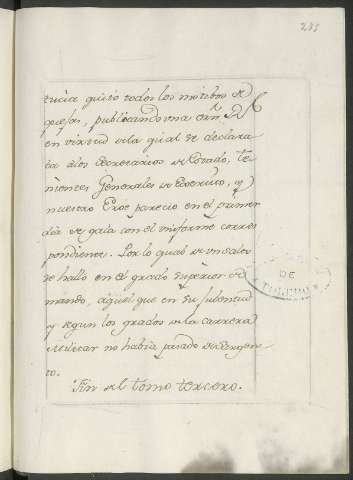 235
tucia quitó todos los motibos de
quejas, publicando una orn. Rl
en virtud de la qual se declara
ba a los Secretarios de Estado, Te-
nientes Generales de Exercito, y
nuestro Eroe parecio en el primer
dia de gala con el uniforme corres
pondiente. Por lo qual de un salto
se halló en el grado superior de
mando, aquel que en su Jubentud
y segun los grados de la carrera
Militar no habia pasado de Sargen-
to.
Fin del tomo tercero.
DE
TOLEDO